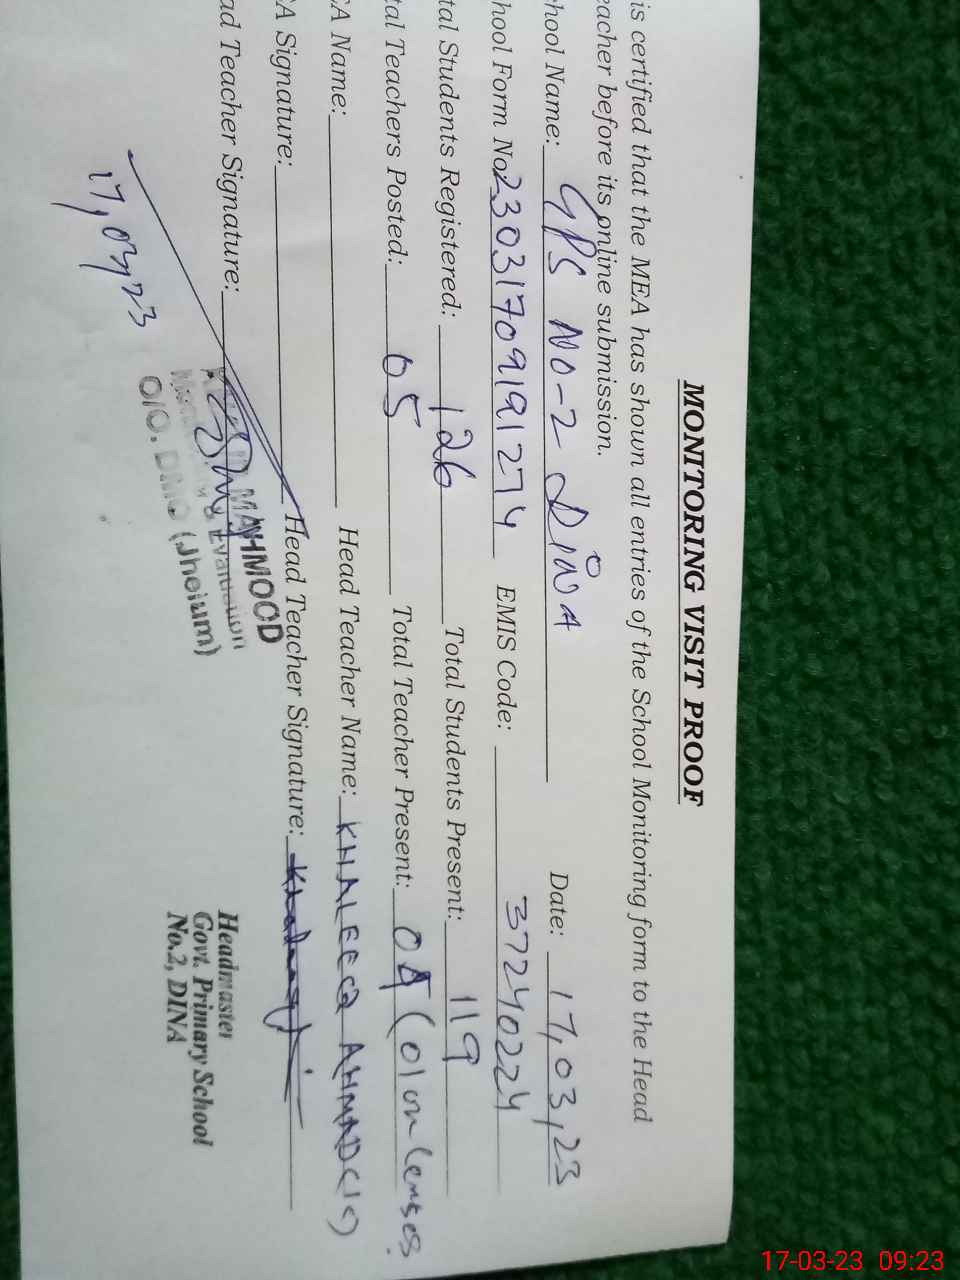 MONITORING VISIT PROOF
is certified that the MEA has shown all entries of the School Monitoring form to the Head
eacher before its online submission.
chool Name: GPS NO-2 DINA Date: 17,03,23
hool Form No. 23031709191274 EMIS Code: 37240224
tal Students Registered: 126 Total Students Present: 119
tal Teachers Posted: 05 Total Teacher Present: 04 (01 on
A Name: Head Teacher Name: KHALEEQ AHMAD
A Signature: Head Teacher Signature:
ad Teacher Signature:
MAHMOOD
& Evaluation
O/O. DMO (Jhelum)
17,03,23
Headmaster
Govt. Primary School
No.2, DINA
17-03-23 09:23